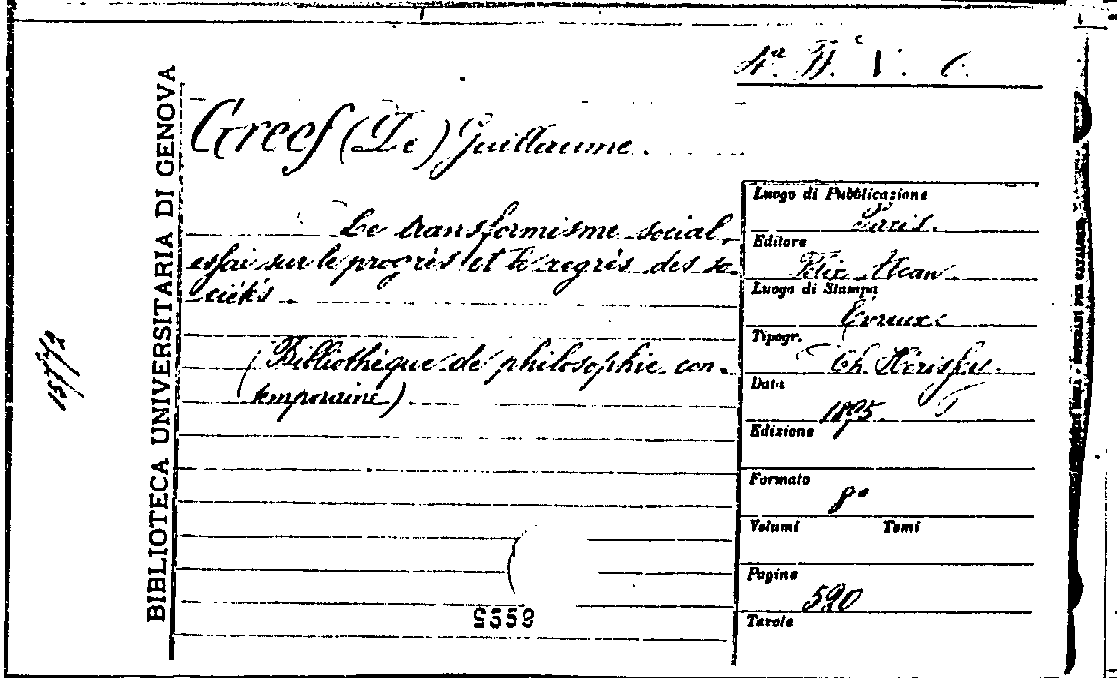 BIBLIOTECA UNIVERSITARIA DI GENOVA
Greef (De) Guillaume.
Le transformisme social,
essai sur le progrès et le regrès des so-
ciétés.
(Bibliothèque de philosophie con-
temporaine)
Luogo di Pubblicazione
Paris.
Editore
Félix Alcan
Luogo di Stampa
Évreux.
Tipogr.
Ch. Hérissey.
Data
1895.
Edizione
Formato
8°
Volumi Tomi
Pagine
520
Tavole